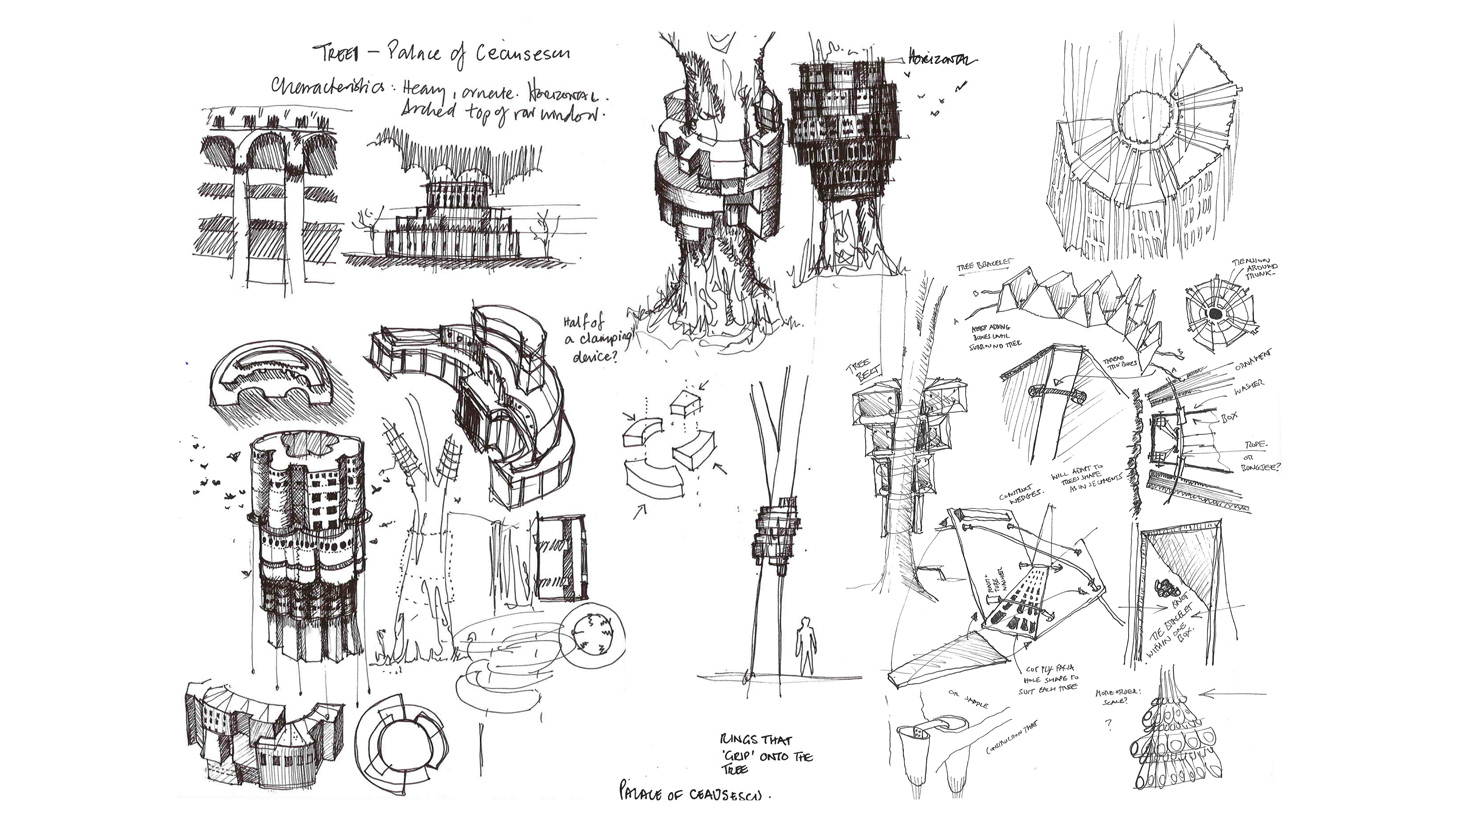 TREE 1 - Palace of Ceausescu
Characteristics: Heavy, ornate. HORIZONTAL.
Arched top of row window.
HORIZONTAL
Half of
a clamping
device?
TREE
BELT
RINGS THAT
'GRIP' ONTO THE
TREE
PALACE OF CEAUSESCU.
TREE BRACELET
B
A
KEEP ADDING
BOXES UNTIL
SURROUND TREE
TENSION
AROUND
TRUNK.
THREAD
THRO' BOXES
B
A
ORNAMENT
WASHER
BOX
ROPE
OR
BUNGEE?
WILL ADAPT TO
TREES SHAPE
AS IN SEGMENTS
CONSTRUCT
WEDGES.
TIE BRACELET
WITHIN ONE
BOX.
CUT PLY FACIA
HOLE SHAPE TO
SUIT EACH TREE
OR SIMPLE
CONSTRUCTION THAT
MODE ORDER:
SCALE?
?